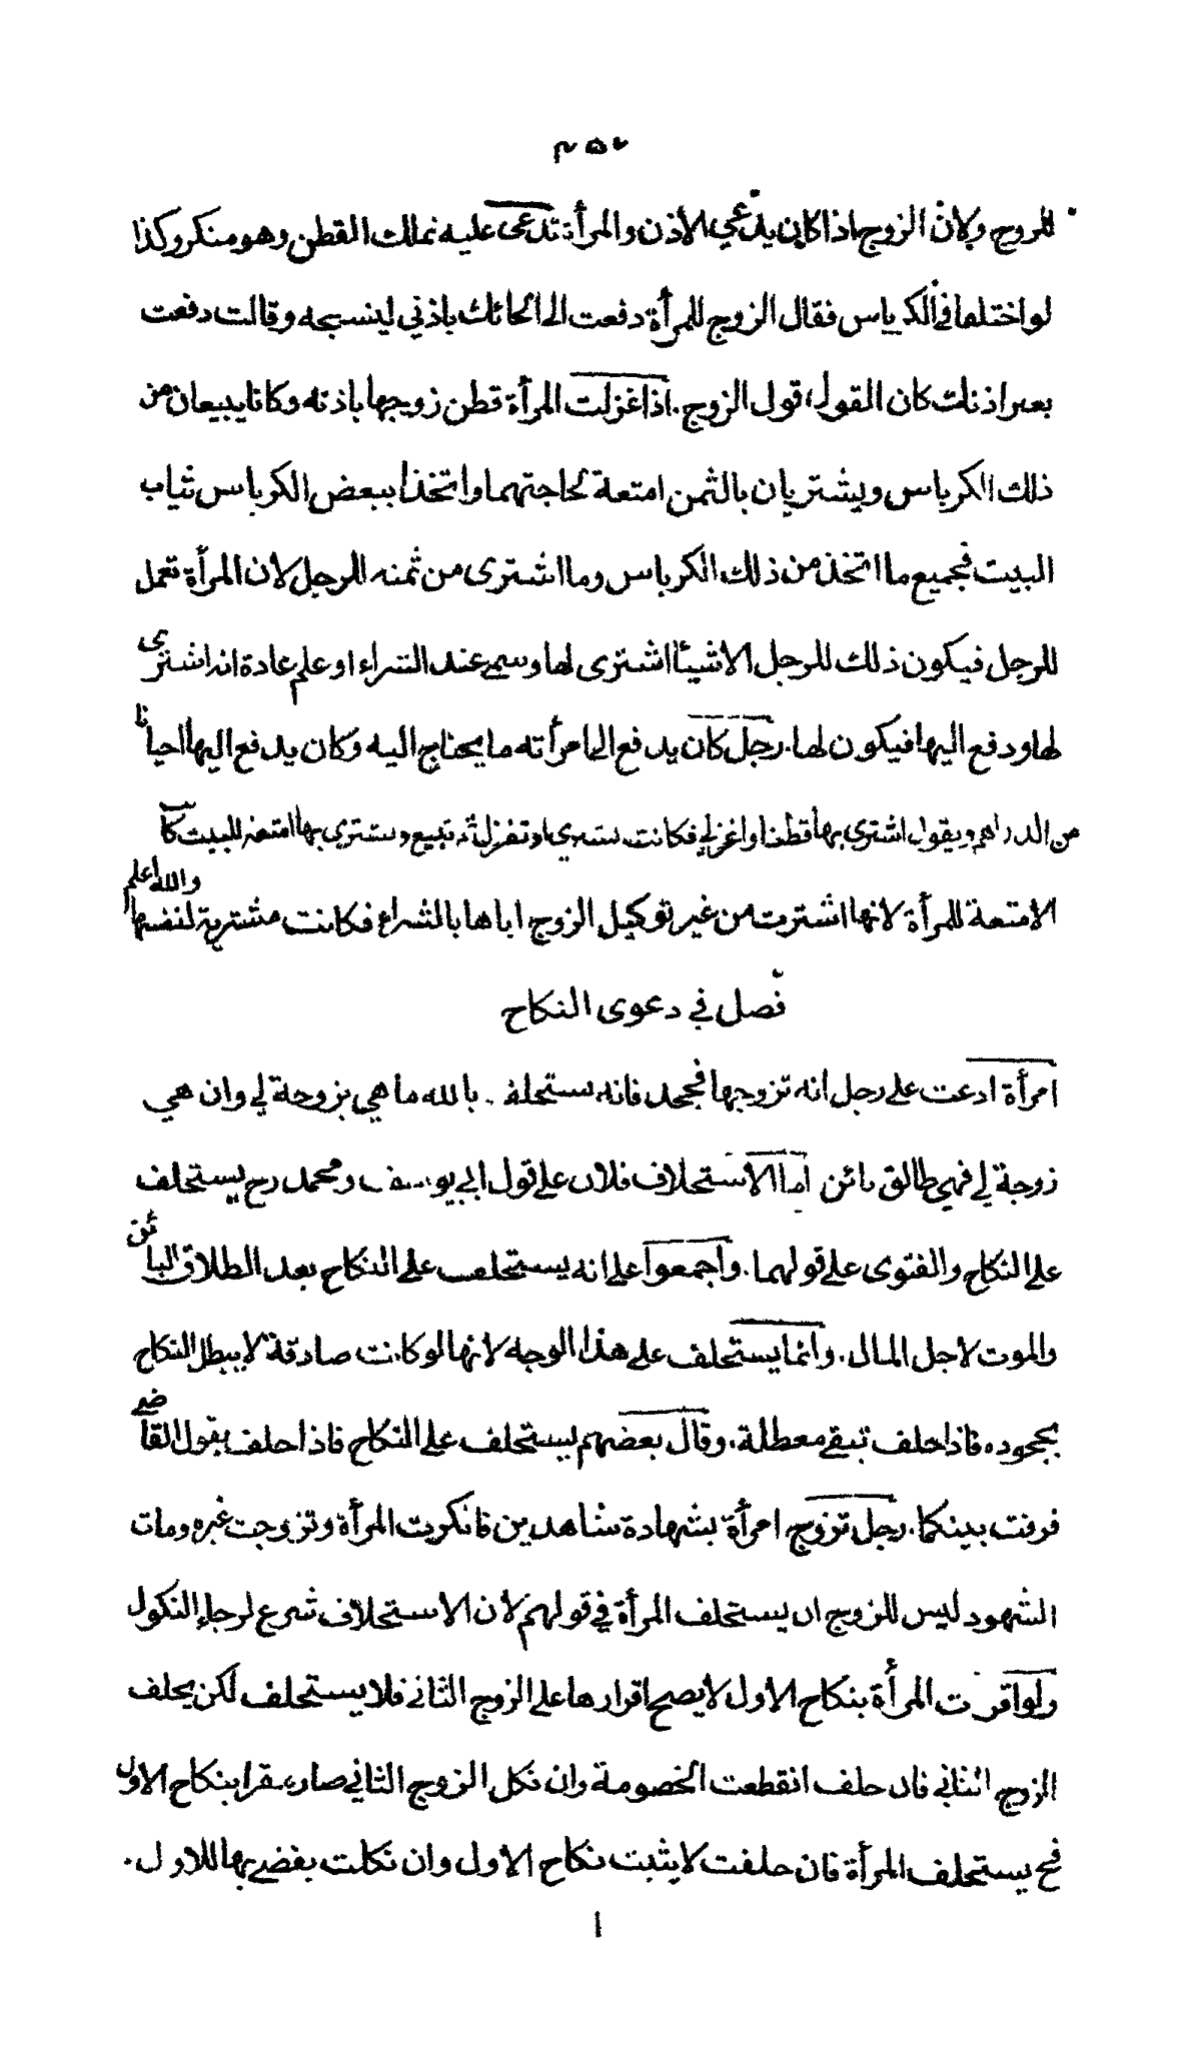 ٢٥٢
للزوج ولان الزوج اذا كان يدعي الأذن والمرأة تدعى عليه تملك القطن وهو منكر وكذا
لو اختلفا في الكرباس فقال الزوج للمرأة دفعت الى الحائك باذني لينسجه وقالت دفعت
بغير اذنك كان القول قول الزوج. اذا غزلت المرأة قطن زوجها باذنه وكانا يبيعان من
ذلك الكرباس ويشتريان بالثمن امتعة لحاجتهما واتخذا ببعض الكرباس ثياب
البيت فجميع ما اتخذ من ذلك الكرباس وما اشترى من ثمنه للرجل لان المرأة تعمل
للرجل فيكون ذلك للرجل الا شيئا اشترى لها وسمى عند الشراء او علم عادة انه اشترى
لها ودفع اليها فيكون لها. رجل كان يدفع الى امرأته ما يحتاج اليه وكان يدفع اليها احيانا
من الدراهم ويقول اشتري بها قطنا واغزلي فكانت تشتري وتغزل ثم تبيع وتشتري بها امتعة للبيت كانت
الامتعة للمرأة لانها اشترت من غير توكيل الزوج اياها بالشراء فكانت مشترية لنفسها والله اعلم
فصل في دعوى النكاح
امرأة ادعت على رجل انه تزوجها فجحد فانه يستحلف بالله ما هي بزوجة لي وان هي
زوجة لي فهي طالق بائن اما الاستحلاف فلان على قول ابي يوسف ومحمد رح يستحلف
على النكاح والفتوى على قولهما. واجمعوا على انه يستحلف على النكاح بعد الطلاق البائن
والموت لاجل المال. وانما يستحلف على هذا الوجه لانها لو كانت صادقة لا يبطل النكاح
بجحوده فاذا حلف تبقى معطلة. وقال بعضهم يستحلف على النكاح فاذا حلف يقول القاضي
فرقت بينكما. رجل تزوج امرأة بشهادة شاهدين فانكرت المرأة وتزوجت غيره ومات
الشهود ليس للزوج ان يستحلف المرأة في قولهم لان الاستحلاف شرع لرجاء النكول
ولو اقرت المرأة بنكاح الاول لا يصح اقرارها على الزوج الثاني فلا يستحلف لكن يحلف
الزوج الثاني فان حلف انقطعت الخصومة وان نكل الزوج الثاني صار مقرا بنكاح الاول
فح يستحلف المرأة فان حلفت لا يثبت نكاح الاول وان نكلت يقضي بها للاول.
ا